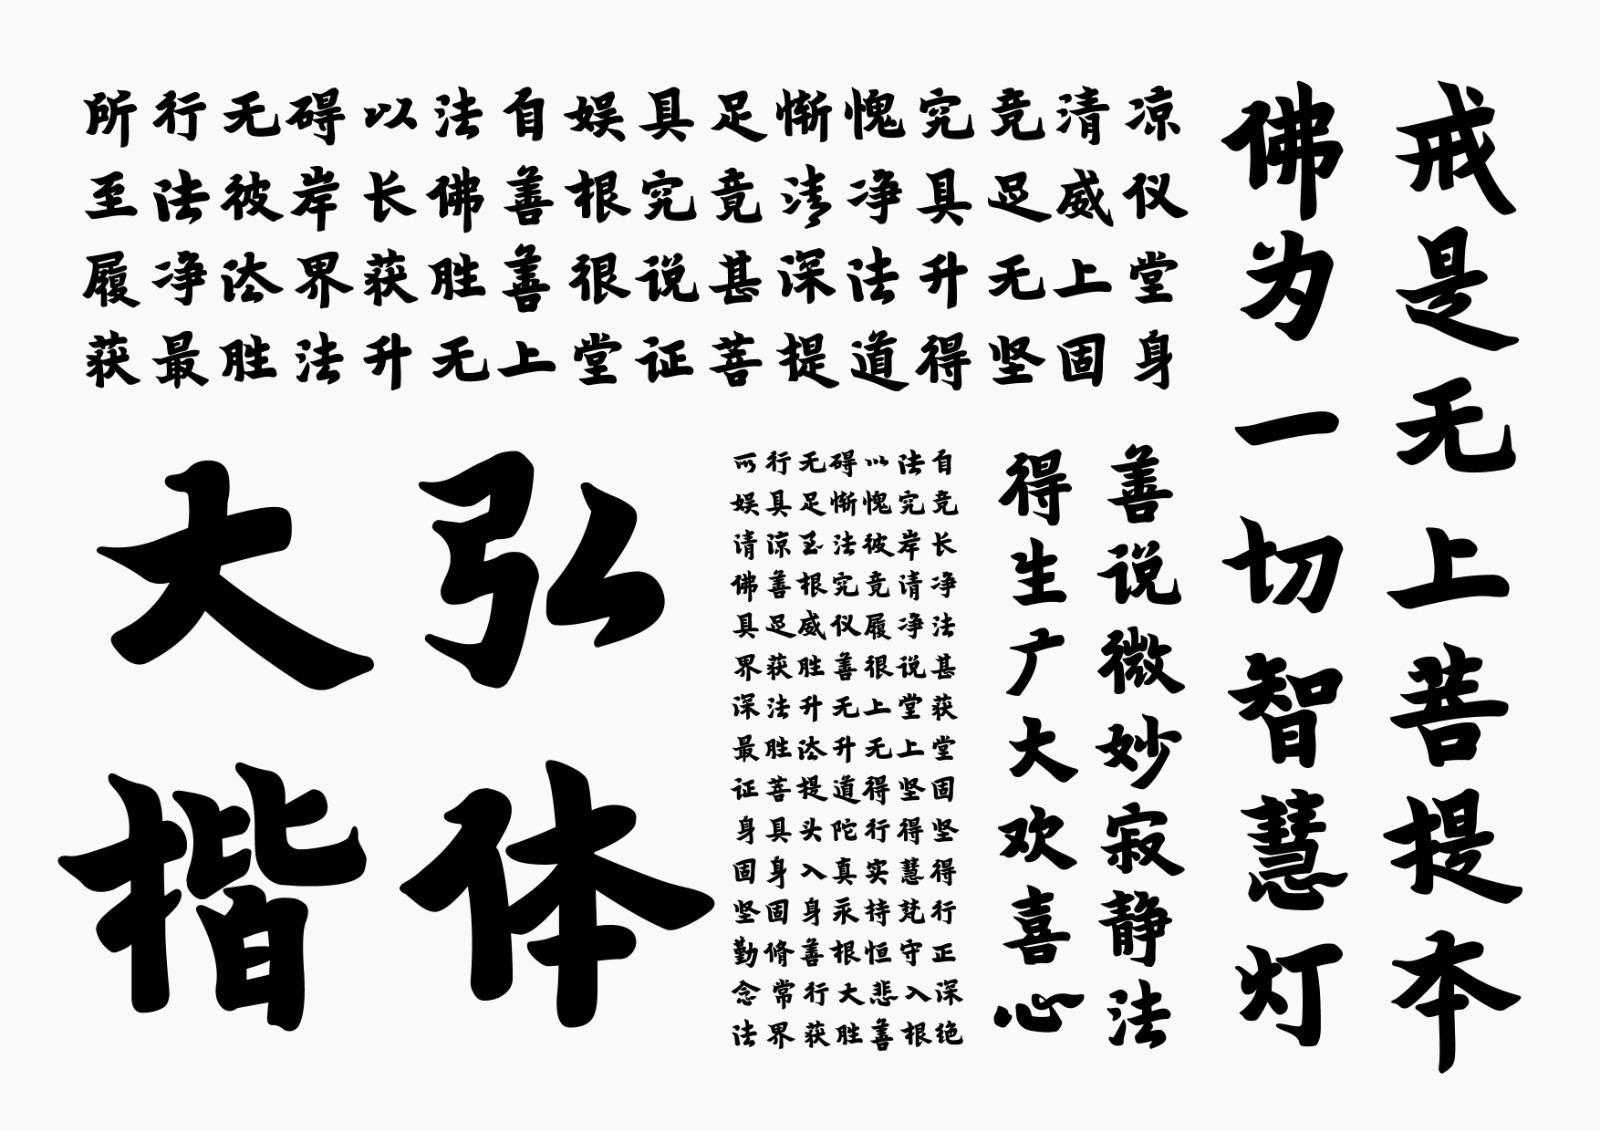 所行无碍以法自娱具足惭愧究竞清凉
至法彼岸长佛善根究竟清净具足威仪
履净法界获胜善很说甚深法升无上堂
获最胜法升无上堂证菩提道得坚固身
戒是无上菩提本
佛为一切智慧灯
大弘
楷体
善说微妙寂静法
得生广大欢喜心
所行无碍以法自
娱具足惭愧究竞
清凉至法彼岸长
佛善根究竟清净
具足威仪履净法
界获胜善很说甚
深法升无上堂获
最胜法升无上堂
证菩提道得坚固
身具头陀行得坚
固身入真实慧得
坚固身永持梵行
勤修善根恒守正
念常行大悲入深
法界获胜善根绝